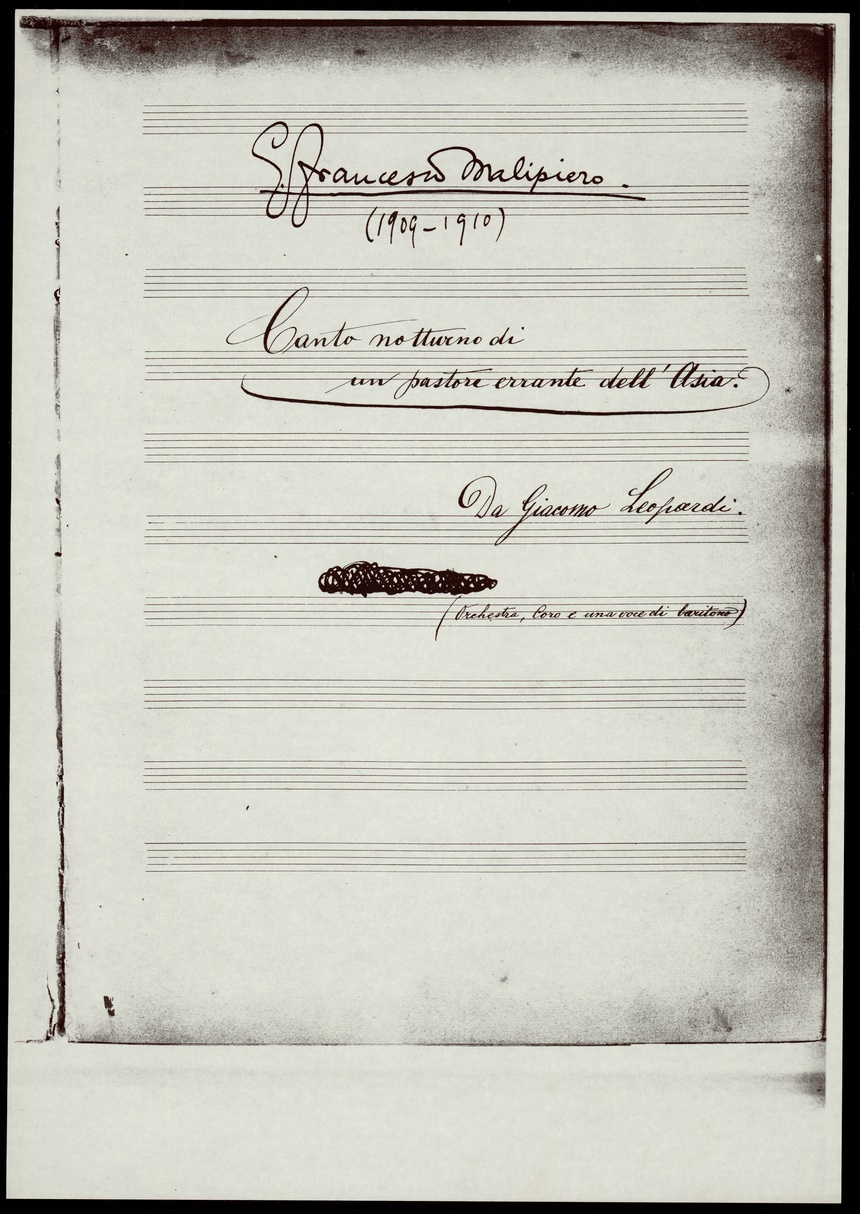 G. Francesco Malipiero.
(1909-1910)
Canto notturno di
un pastore errante dell'Asia.
Da Giacomo Leopardi.
(Orchestra, Coro e una voce di baritono)